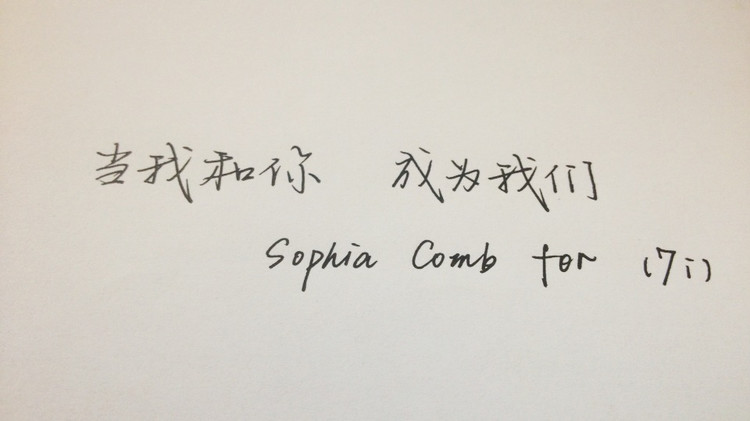 当我和你 成为我们
Sophia Comb for (7i)